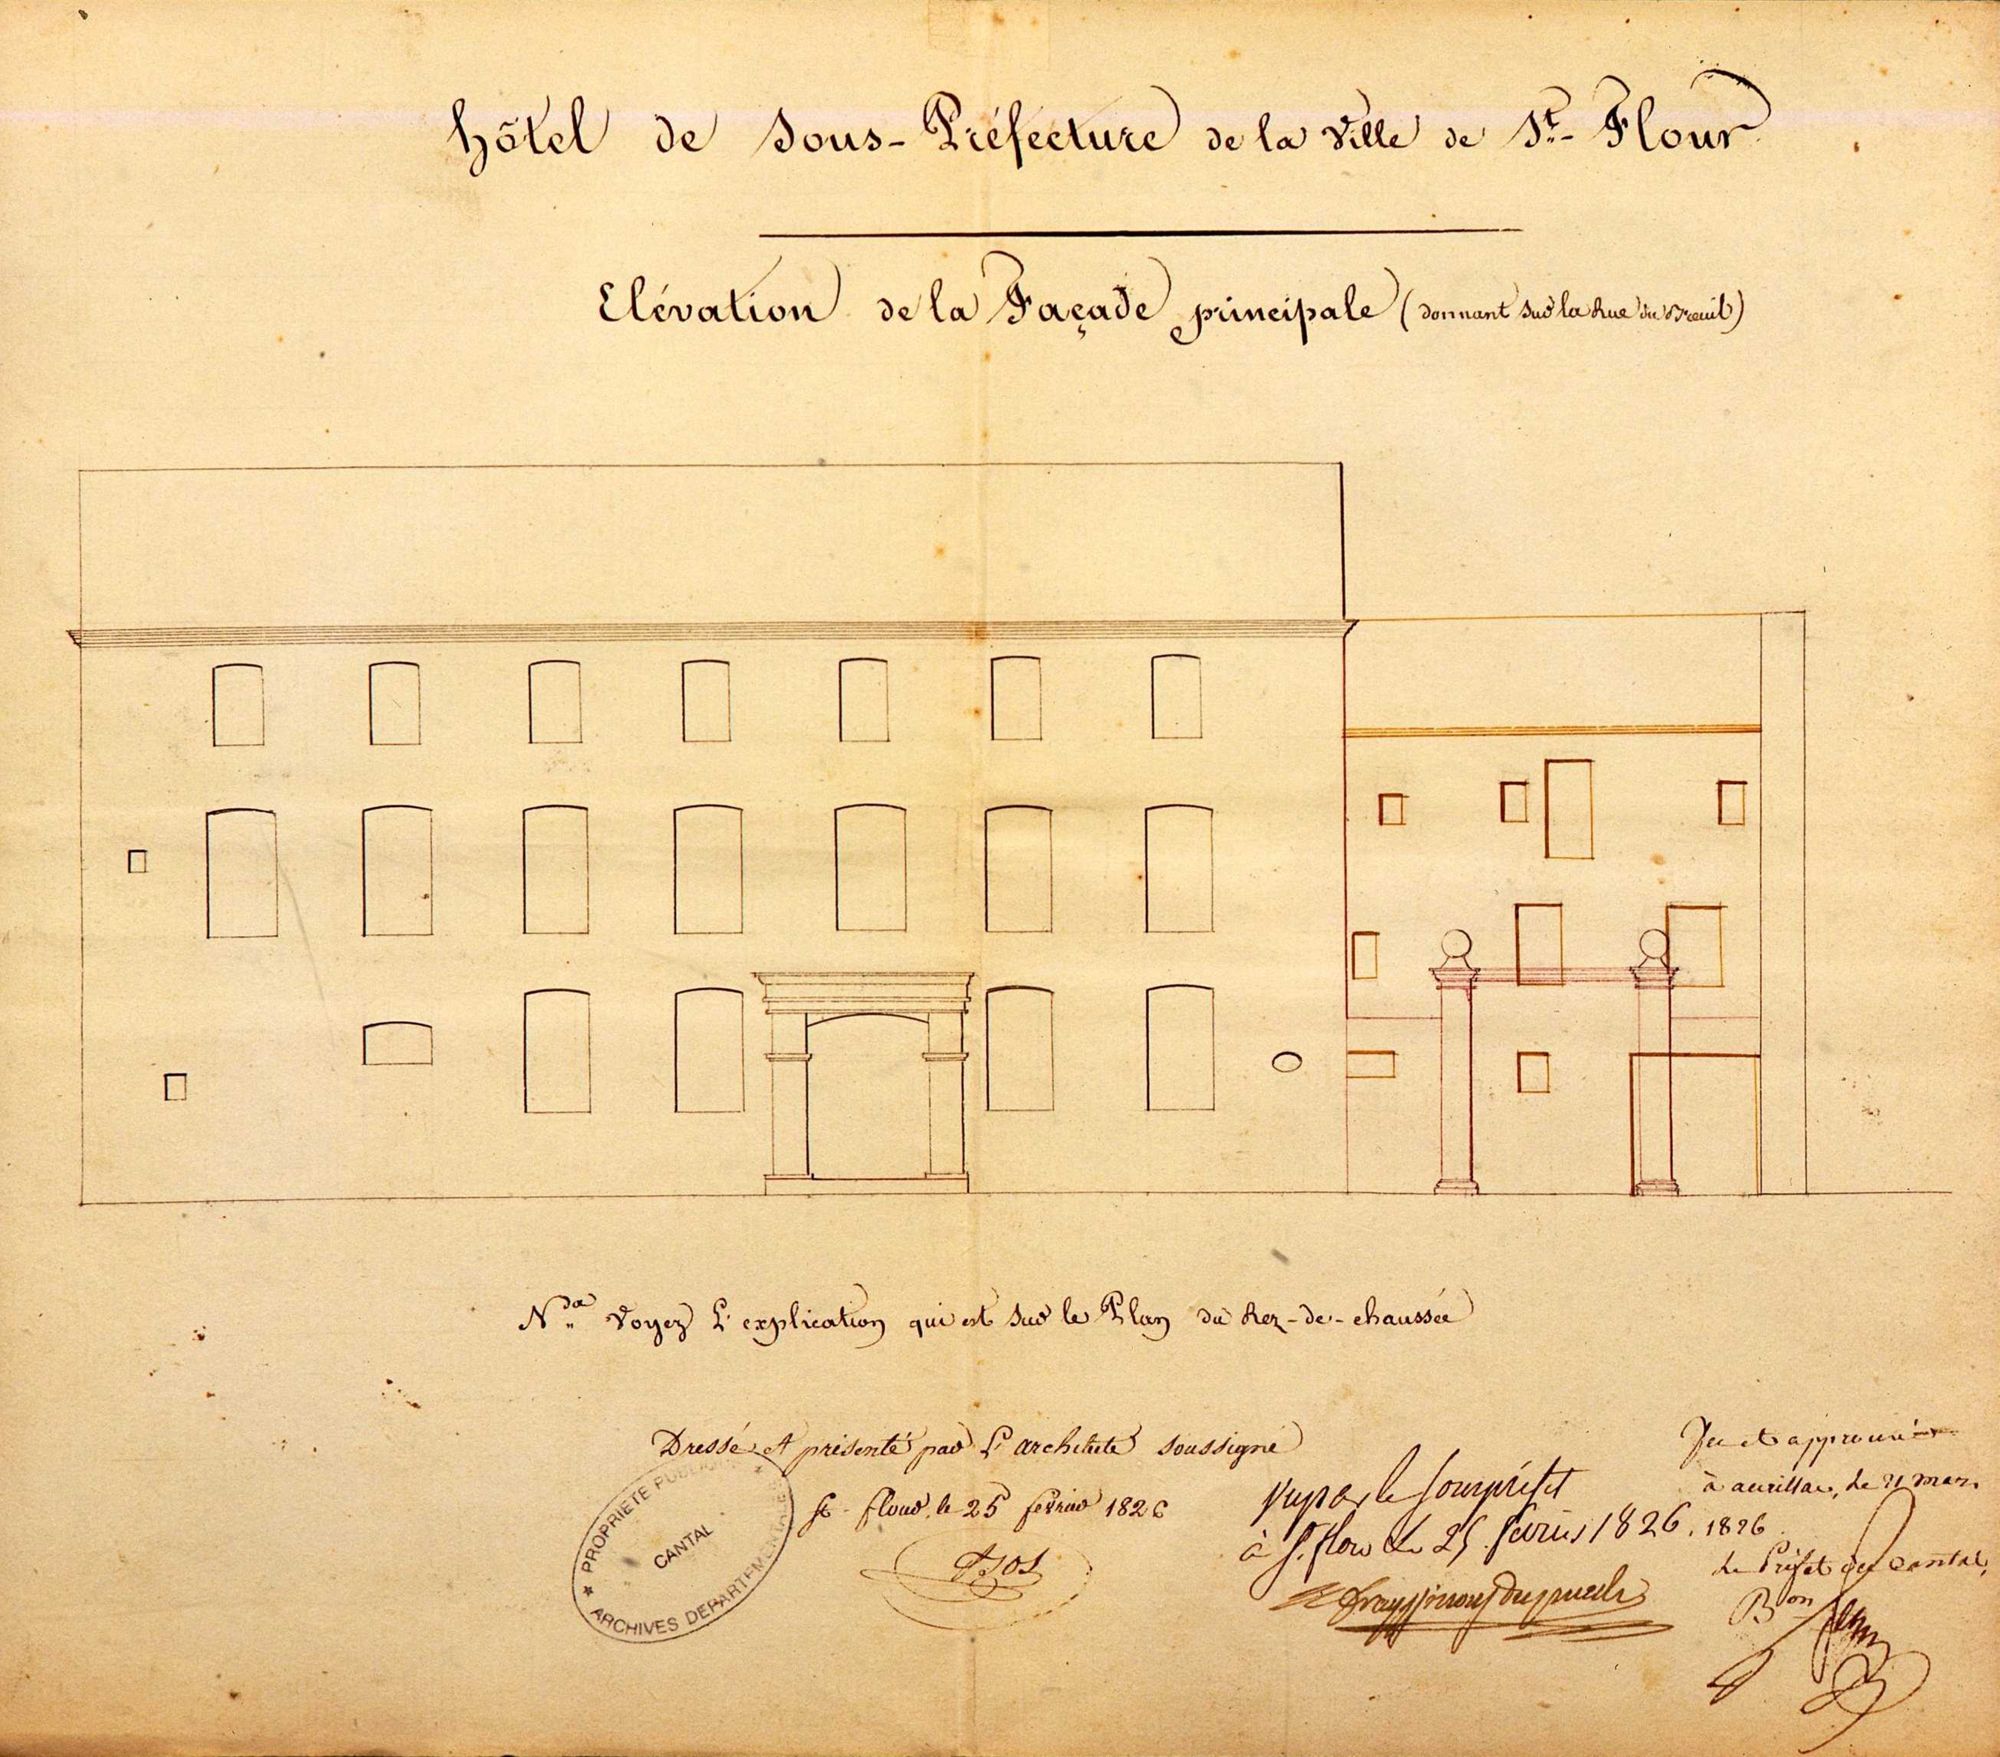 hôtel de Sous-Préfecture de la Ville de St.- Flour
Elévation de la Façade principale (donnant sur la Rue du Breuil)
Nda Voyez L'explication qui est sur le Plan du Rez-de-chaussée
Dressé et présenté par L'architecte soussigné
St- flour, le 25 février 1826
vu par le Sousprefet
à St. flour le 25 février 1826.
Vu et approuvé
à aurillac, le 21 mars
1826
Le Préfet du Cantal,
Bon
PROPRIETE PUBLIQUE
CANTAL
ARCHIVES DEPARTEMENTALES